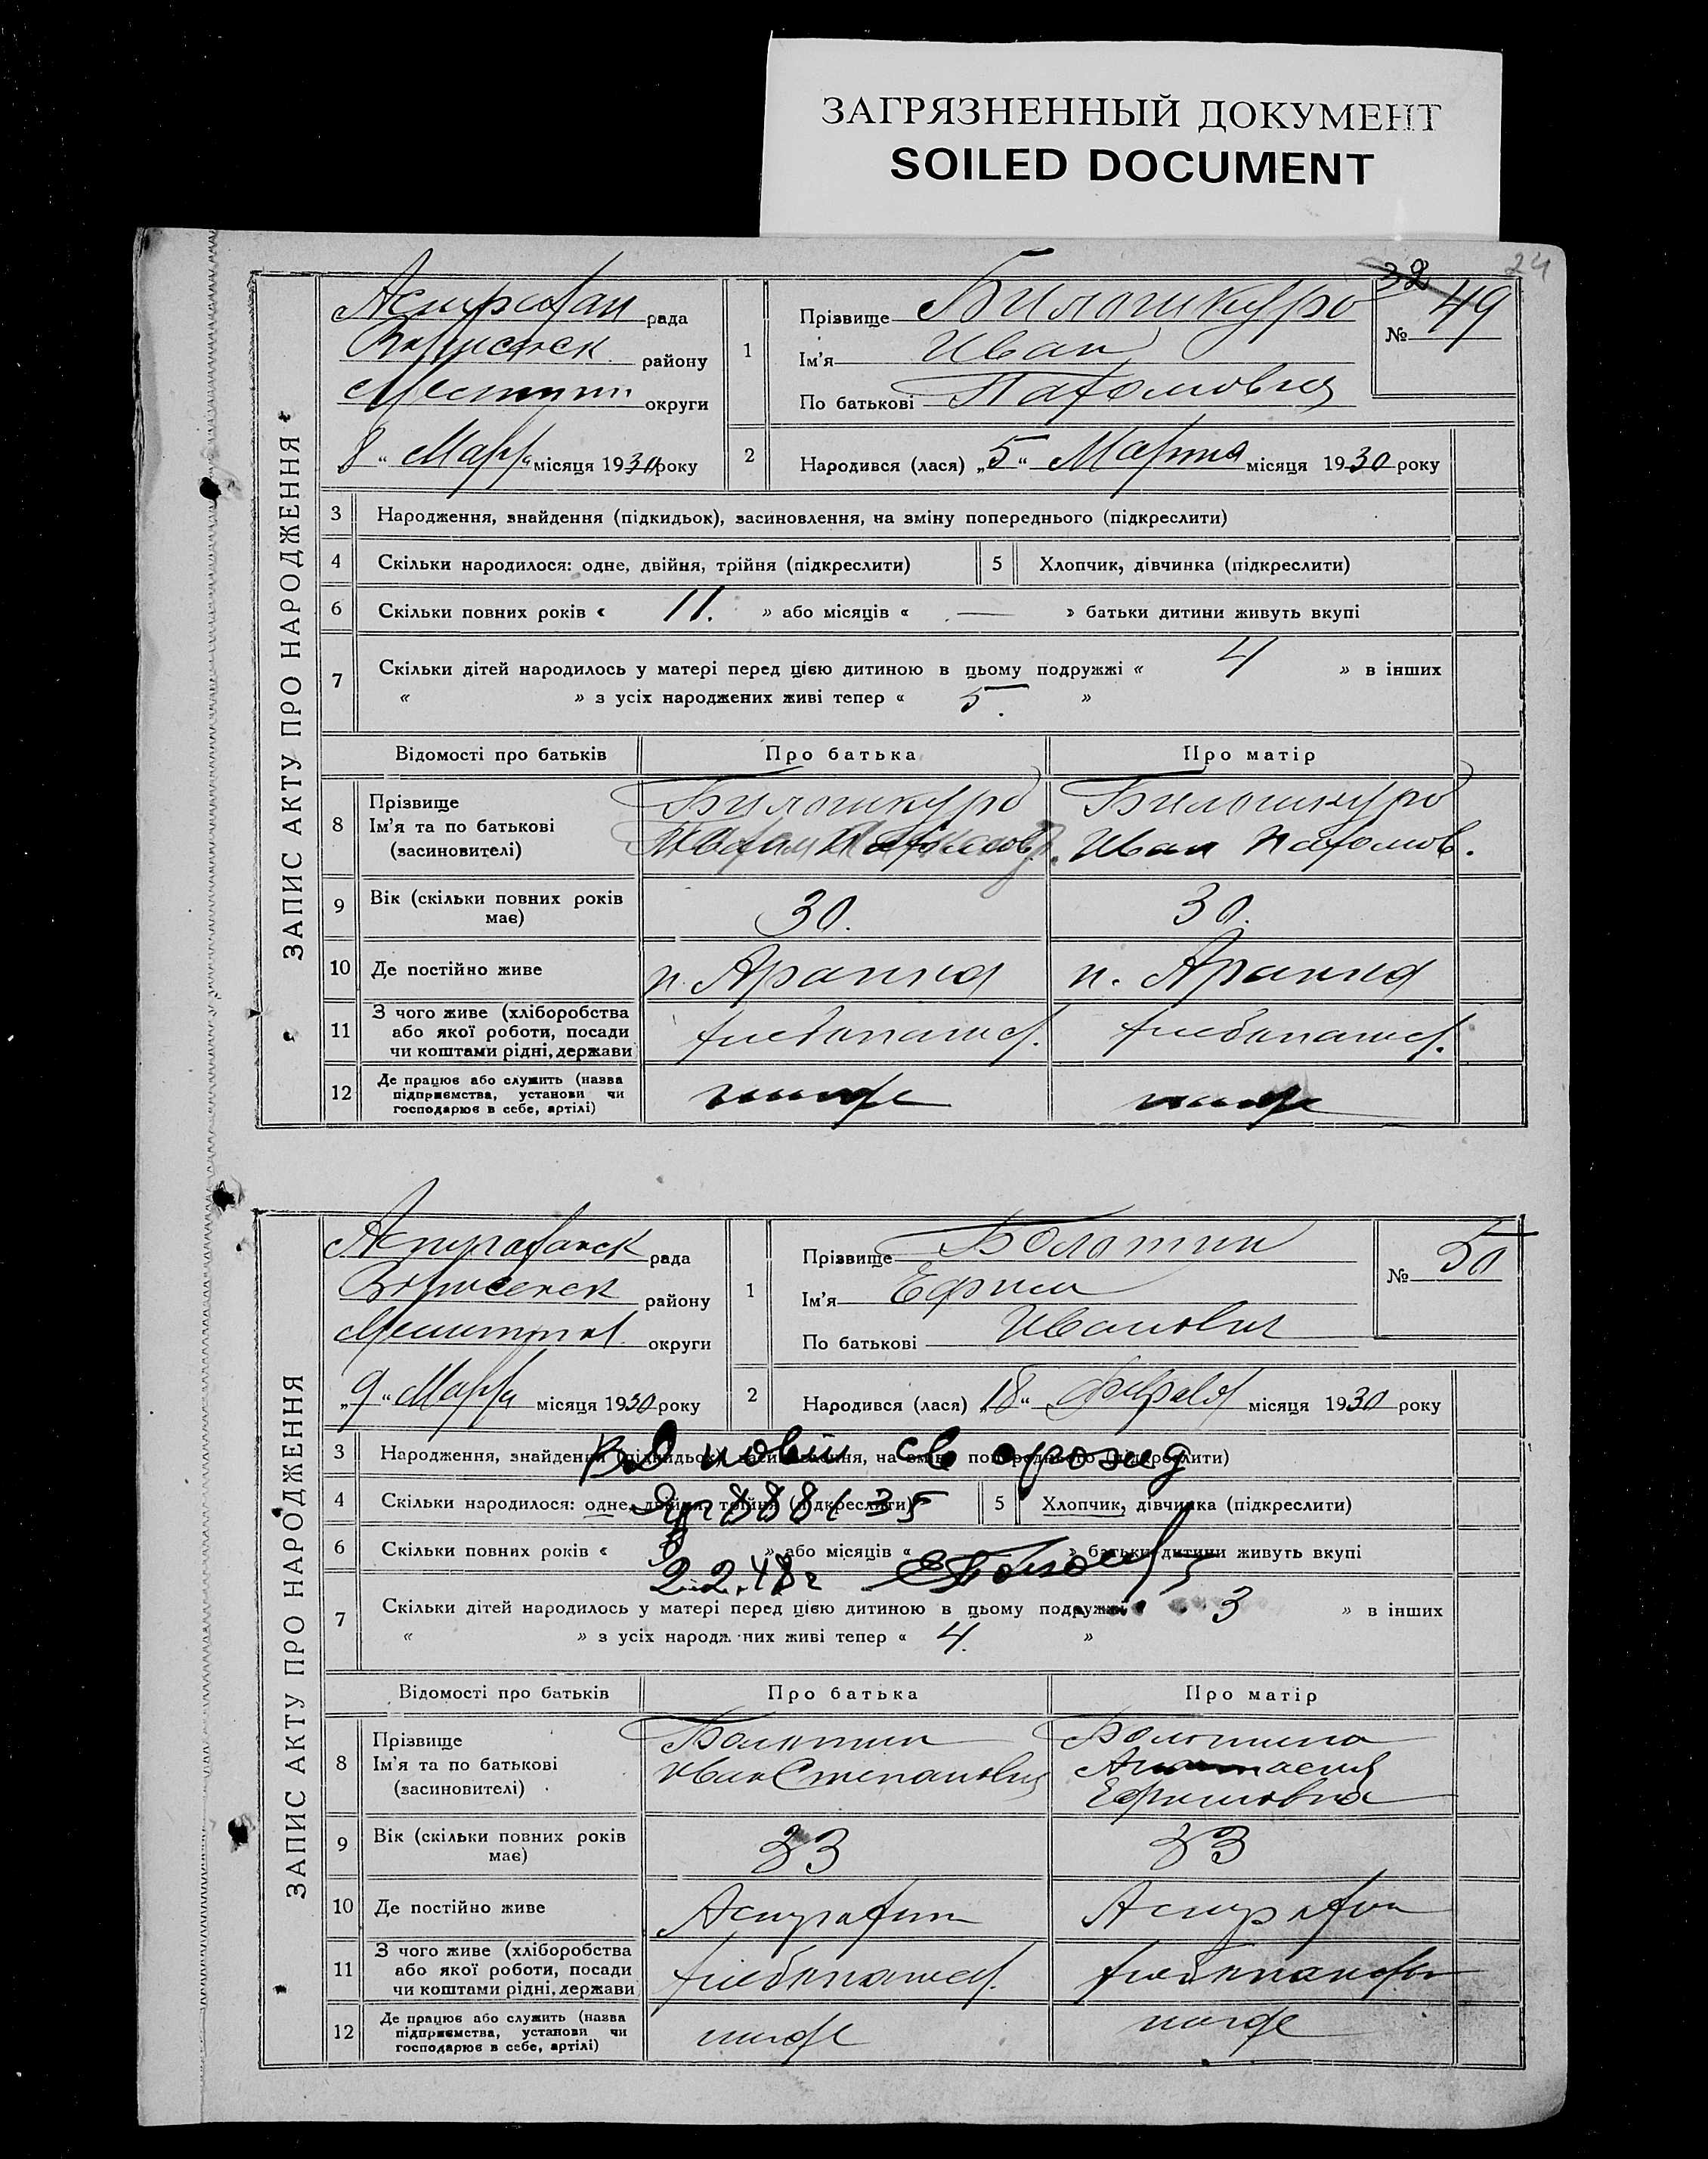 ЗАГРЯЗНЕННЫЙ ДОКУМЕНТ
SOILED DOCUMENT
24
ЗАПИС АКТУ ПРО НАРОДЖЕННЯ
рада
району
округи
8 " Марта місяця 1930 року
1
Прізвище Билошкура
Ім'я Иван
По батькові Пахомович
32
№ 49
2
Народився (лася) „5" Марта місяця 1930 року
3 Народження, знайдення (підкидьок), засиновлення, на зміну попереднього (підкреслити)
4 Скільки народилося: одне, двійня, трійня (підкреслити) 5 Хлопчик, дівчинка (підкреслити)
6 Скільки повних років « 11. » або місяців « — » батьки дитини живуть вкупі
7 Скільки дітей народилось у матері перед цією дитиною в цьому подружжі « 4 » в інших
« » з усіх народжених живі тепер « 5. »
Відомості про батьків Про батька Про матір
8 Прізвище
Ім'я та по батькові
(засновителі)
Билошкура
Билошкура
Иван Пахомов.
9 Вік (скільки повних років
має)
30. 30.
10 Де постійно живе
11 З чого живе (хліборобства
або якої роботи, посади
чи коштами рідні, держави
хлебопашес. хлебопашес.
12 Де працює або служить (назва
підприємства, установи чи
господарює в себе, артілі)
ЗАПИС АКТУ ПРО НАРОДЖЕННЯ
рада
району
округи
„9" Марта місяця 1930 року
1
Прізвище Болотин
Ім'я Ефим
По батькові Иванович
№ 50
2
Народився (лася) „18" Февраля місяця 1930 року
3 Народження, знайдення (підкидьок), засиновлення, на зміну попереднього (підкреслити)
4 Скільки народилося: одне, двійня, трійня (підкреслити) 5 Хлопчик, дівчинка (підкреслити)
6 Скільки повних років « » або місяців « » батьки дитини живуть вкупі
7 Скільки дітей народилось у матері перед цією дитиною в цьому подружжі « 3 » в інших
« » з усіх народжених живі тепер « 4. »
Відомості про батьків Про батька Про матір
8 Прізвище
Ім'я та по батькові
(засиновителі)
Болотин
Иван Степанович
Болотина
Анастасия
Ефимовна
9 Вік (скільки повних років
має)
33 33
10 Де постійно живе
11 З чого живе (хліборобства
або якої роботи, посади
чи коштами рідні, держави
хлебопашес.
12 Де працює або служить (назва
підприємства, установи чи
господарює в себе, артілі)